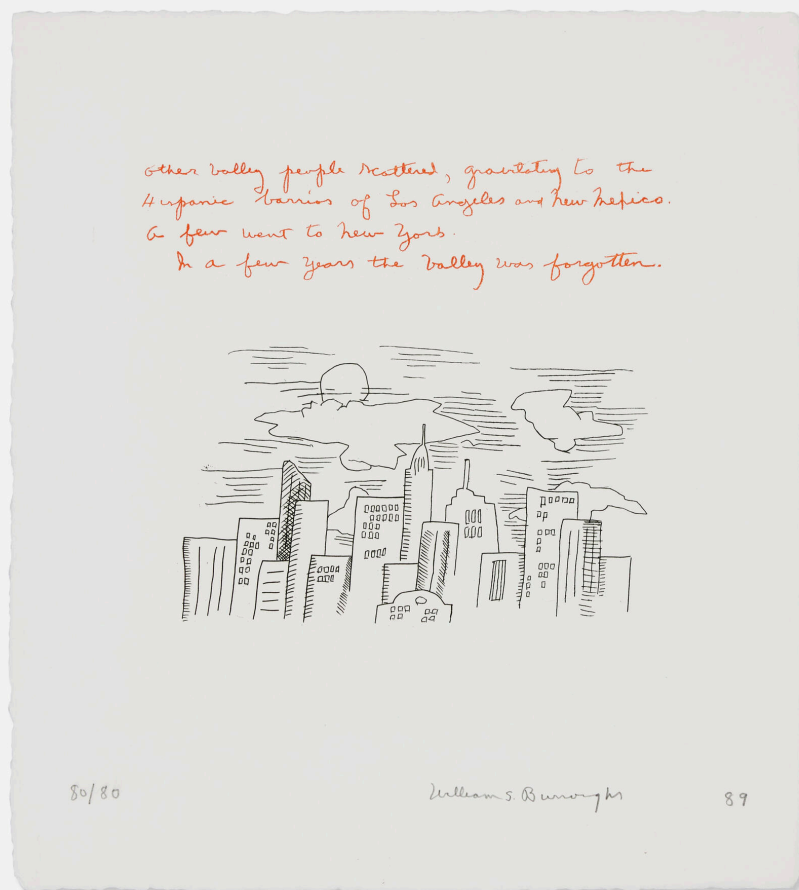 other valley people scattered, gravitating to the
Hispanic barrios of Los Angeles and New Mexico.
A few went to New York.
In a few years the valley was forgotten.
80/80
William S. Burroughs
89